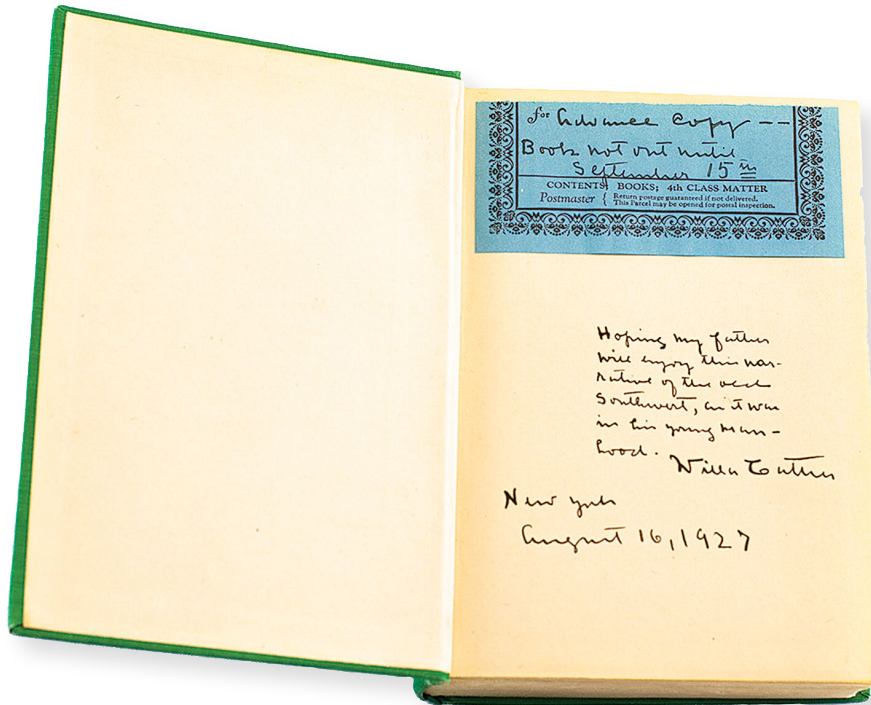 for Advance Copy --
Book not out until
September 15th
CONTENTS; BOOKS; 4th CLASS MATTER
Postmaster { Return postage guaranteed if not delivered.
This Parcel may be opened for postal inspection.
Hoping my father
will enjoy this nar-
rative of the old
Southwest, as it was
in his young man-
hood.
Willa Cather
New York
August 16, 1927